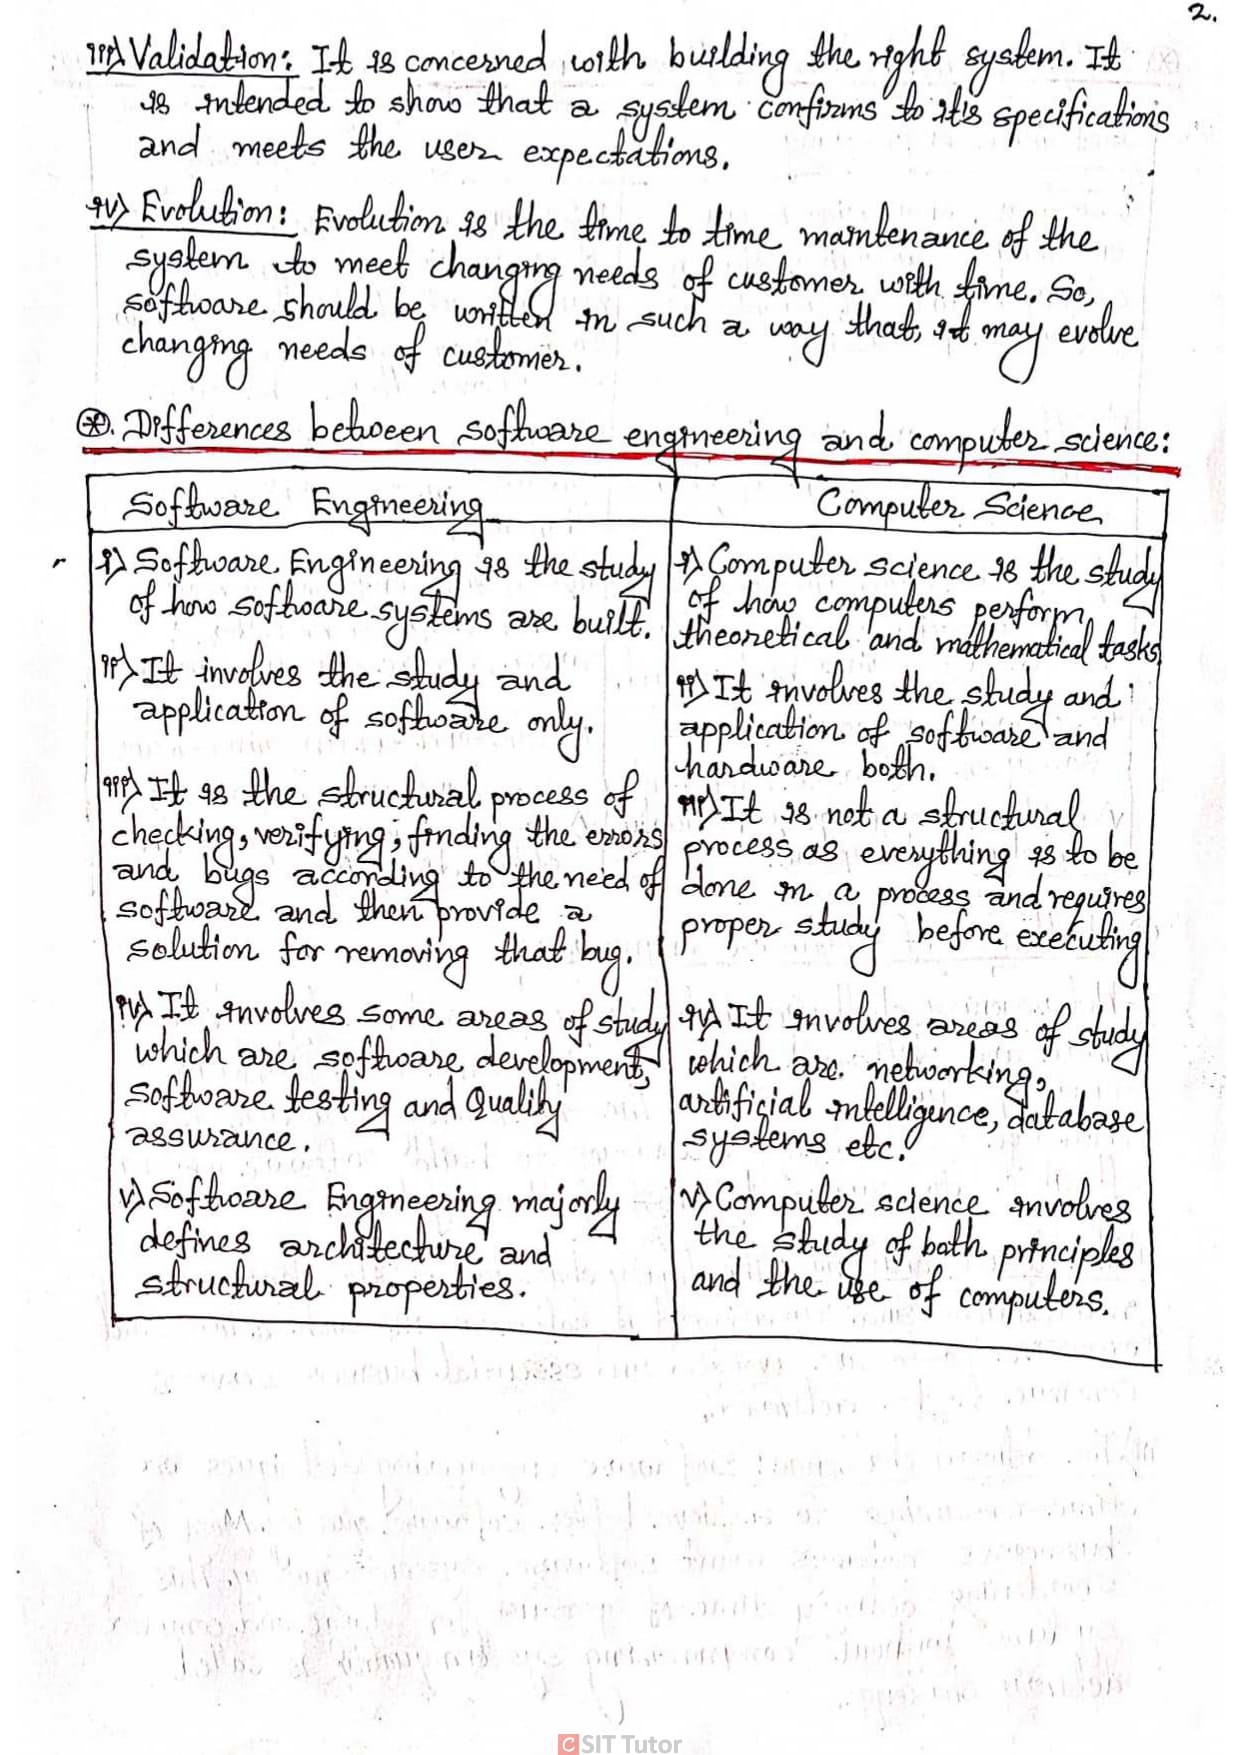 2.
iii) Validation: It is concerned with building the right system. It
is intended to show that a system confirms to it's specifications
and meets the user expectations.
iv) Evolution: Evolution is the time to time maintenance of the
system to meet changing needs of customer with time. So,
software should be written in such a way that, it may evolve
changing needs of customer.
⊛. Differences between software engineering and computer science:
Software Engineering
i) Software Engineering is the study
of how software systems are built.
ii) It involves the study and
application of software only.
iii) It is the structural process of
checking, verifying, finding the errors
and bugs according to the need of
software and then provide a
solution for removing that bug.
iv) It involves some areas of study
which are software development,
software testing and Quality
assurance.
v) Software Engineering majorly
defines architecture and
structural properties.
Computer Science
i) Computer science is the study
of how computers perform
theoretical and mathematical tasks
ii) It involves the study and
application of software and
hardware both.
iii) It is not a structural
process as everything is to be
done in a process and requires
proper study before executing
iv) It involves areas of study
which are networking,
artificial intelligence, database
systems etc.
v) Computer science involves
the study of both principles
and the use of computers.
CSIT Tutor